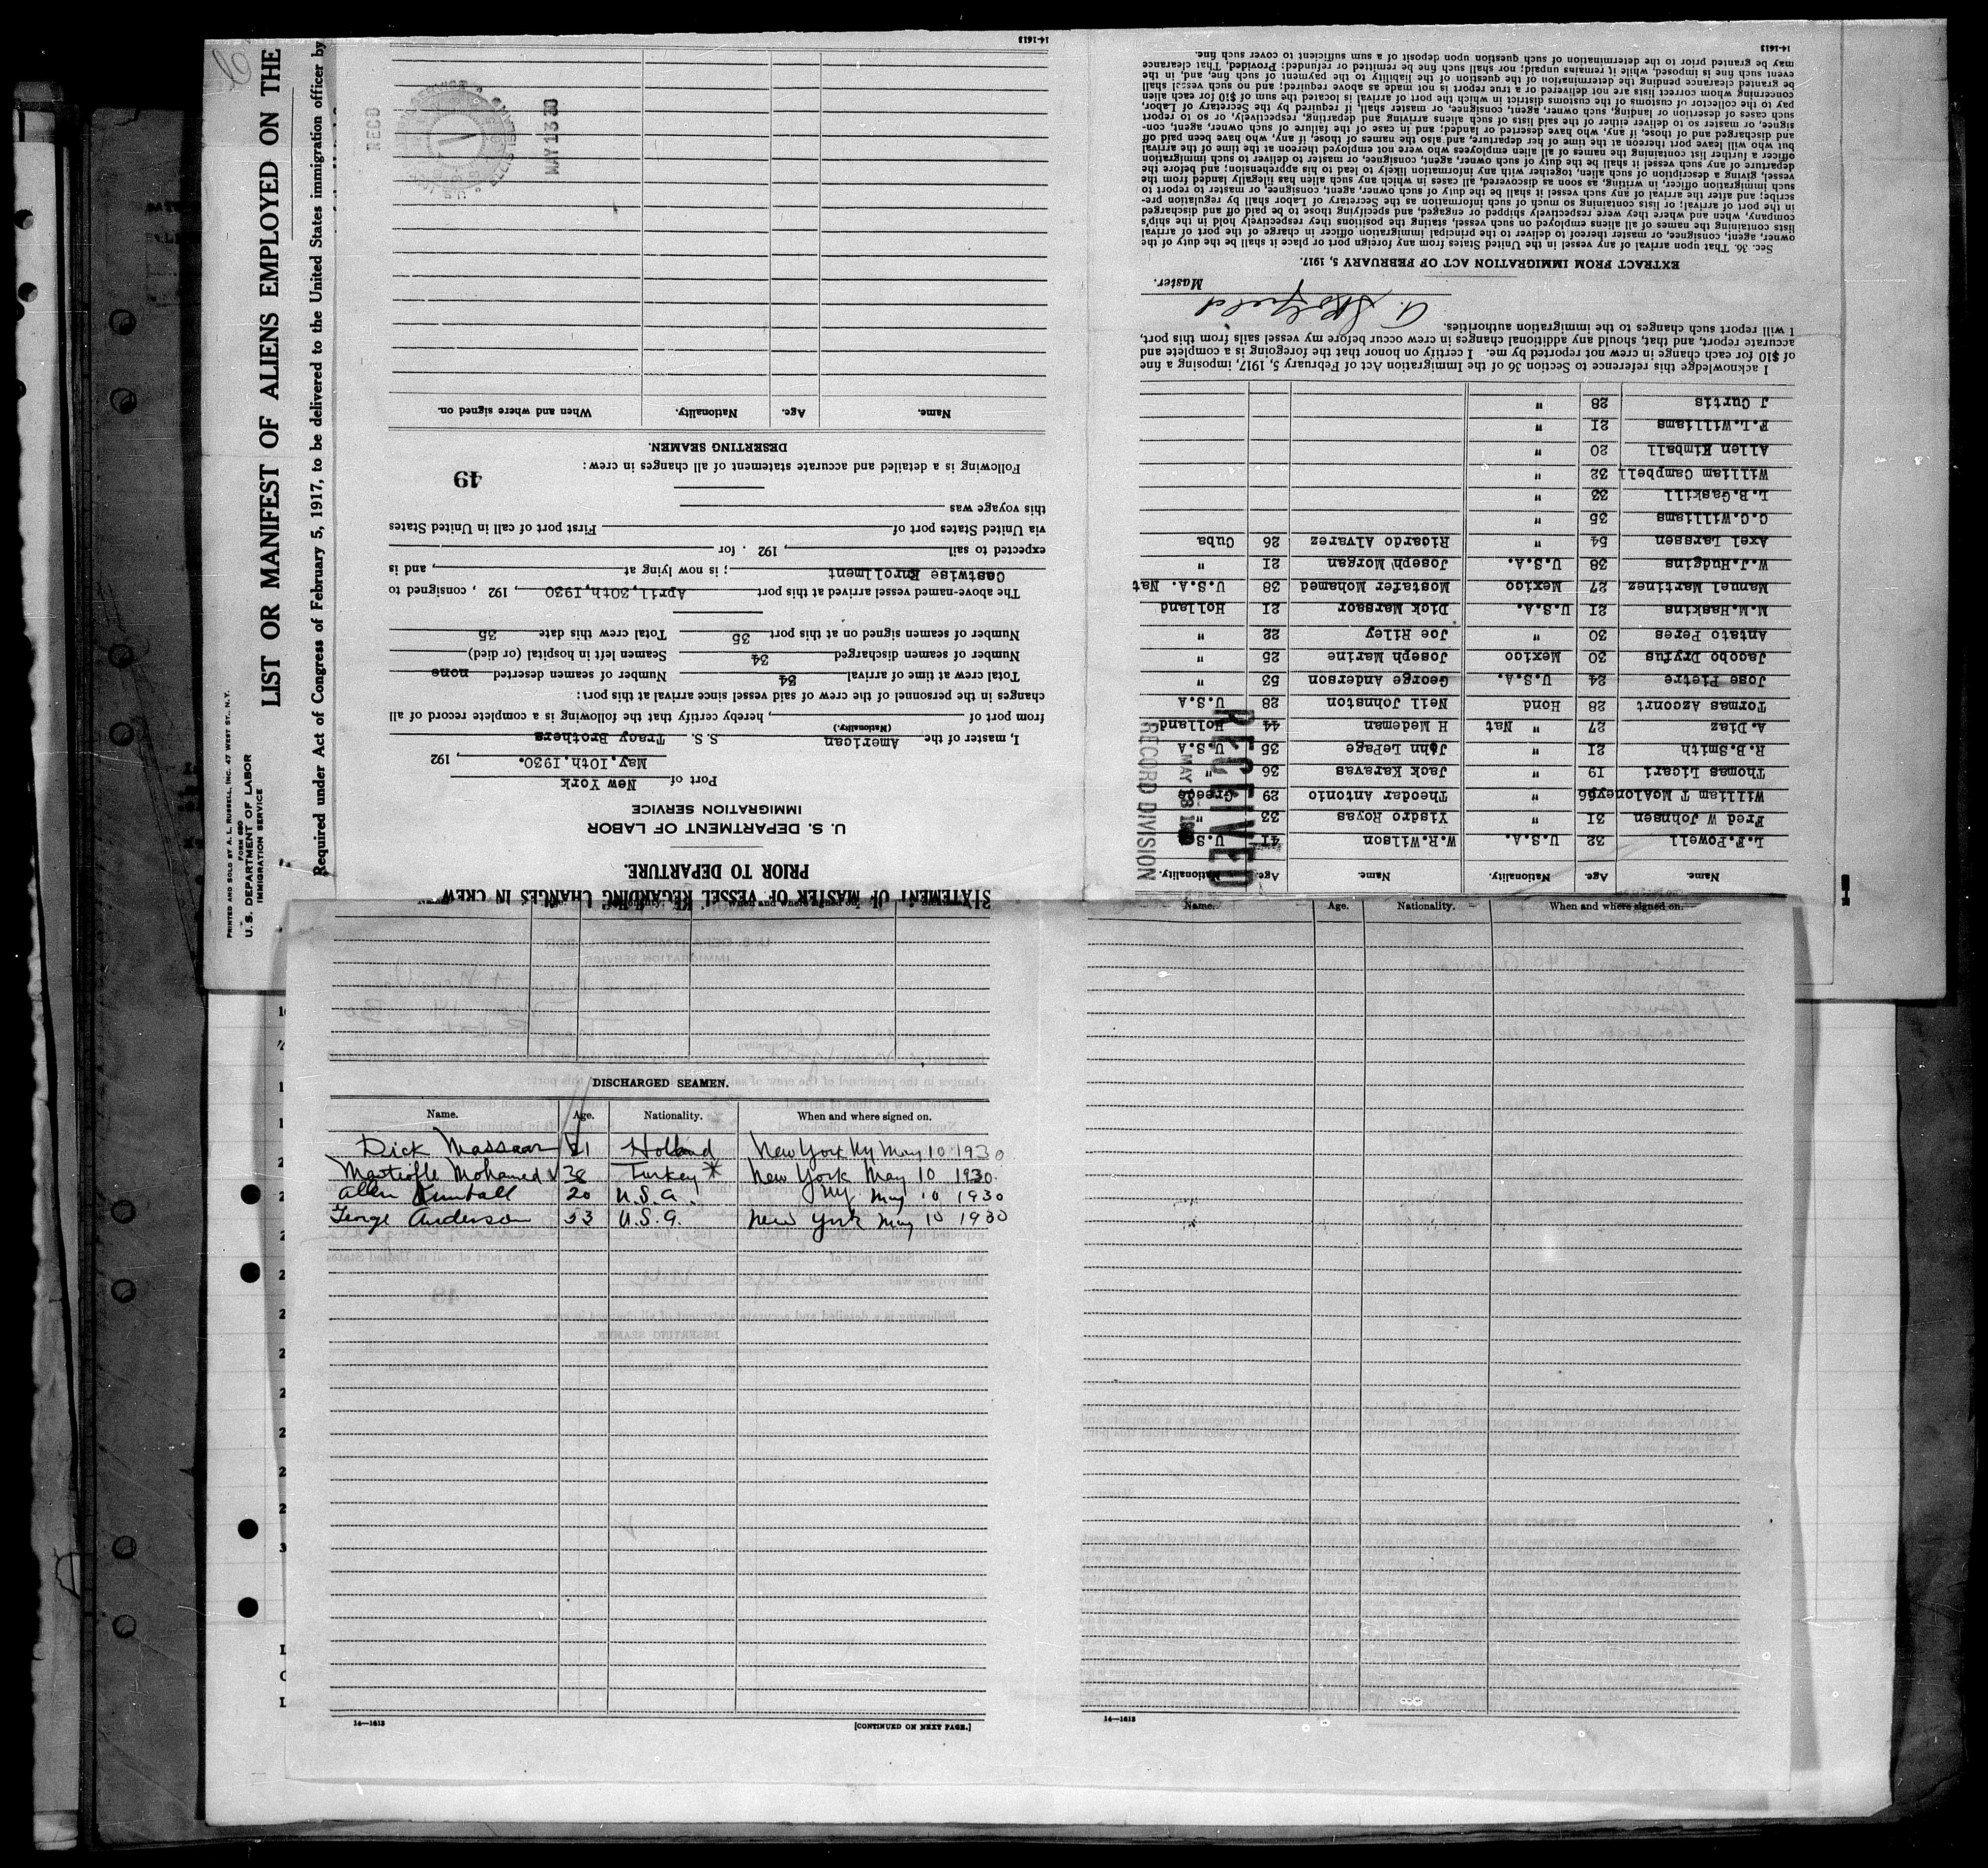 LIST OR MANIFEST OF ALIENS EMPLOYED ON THE
Required under Act of Congress of February 5, 1917, to be delivered to the United States immigration officer by
PRINTED AND SOLD BY A. L. RUSSELL, INC. 47 WEST ST., N.Y.
FORM 680
U. S. DEPARTMENT OF LABOR
IMMIGRATION SERVICE
STATEMENT OF MASTER OF VESSEL REGARDING CHANGES IN CREW
PRIOR TO DEPARTURE.
U. S. DEPARTMENT OF LABOR
IMMIGRATION SERVICE
Port of New York
May.10th.1930. , 192
I, master of the American S.S. Tracy Brothers
(Nationality.)
from port of , hereby certify that the following is a complete record of all
changes in the personnel of the crew of said vessel since arrival at this port:
Total crew at time of arrival 34 Number of seamen deserted none
Number of seamen discharged 34 Seamen left in hospital (or died)
Number of seamen signed on at this port 35 Total crew this date 35
The above-named vessel arrived at this port April,30th,1930 , 192 , consigned to
Castwise Enrollment ; is now lying at , and is
expected to sail , 192 . for
via United States port of First port of call in United States
this voyage was
Following is a detailed and accurate statement of all changes in crew:
49
DESERTING SEAMEN.
Name. Age. Nationality. When and where signed on.
RECD MAY 13 30
14-1613
Name. Age. Nationality. Name. Age. Nationality.
L.F.Powell 32 U.S.A. W.R.Wilson 41 U.S.A
Fred W Johnsen 31 " Yisdro Royas 33 "
William T McAloney 66 " Theodar Antonio 29 Greece
Thomas Licari 19 " Jack Karavas 36 "
R.B.Smith 21 " John LePage 35 U.S.A
A.Diaz 27 " Nat H Medeman 44 Holland
Tormas Azcourt 28 Hond Neil Johnston 28 U.S.A
Jose Pietie 24 U.S.A. George Anderson 53 "
Jacobo Dryfus 30 Mexico Joseph Marine 25 "
Antato Peres 30 " Joe Riley 22 "
M.M.Haskins 21 U.S.A. Dick Marssor 21 Holland
Manuel Martinez 27 Mexico Mostafer Mohamed 38 U.S.A. Nat
W.J.Hudgins 38 U.S.A. Joseph Morgan 21 "
Axel Larssen 54 " Ricardo Alvarez 26 Cuba
C.C.Williams 35 "
L.B.Gaskill 33 "
William Campbell 32 "
Allen Kimball 20 "
F.L.Williams 21 "
J Curtis 28 "
RECEIVED
MAY 13 1930
RECORD DIVISION
I acknowledge this reference to Section 36 of the Immigration Act of February 5, 1917, imposing a fine
of $10 for each change in crew not reported by me. I certify on honor that the foregoing is a complete and
accurate report, and that, should any additional changes in crew occur before my vessel sails from this port,
I will report such changes to the immigration authorities.
Master.
EXTRACT FROM IMMIGRATION ACT OF FEBRUARY 5, 1917.
Sec. 36. That upon arrival of any vessel in the United States from any foreign port or place it shall be the duty of the
owner, agent, consignee, or master thereof to deliver to the principal immigration officer in charge of the port of arrival
lists containing the names of all aliens employed on such vessel, stating the positions they respectively hold in the ship's
company, when and where they were respectively shipped or engaged, and specifying those to be paid off and discharged
in the port of arrival; or lists containing so much of such information as the Secretary of Labor shall by regulation pre-
scribe; and after the arrival of any such vessel it shall be the duty of such owner, agent, consignee, or master to report to
such immigration officer, in writing, as soon as discovered, all cases in which any such alien has illegally landed from the
vessel, giving a description of such alien, together with any information likely to lead to his apprehension; and before the
departure of any such vessel it shall be the duty of such owner, agent, consignee, or master to deliver to such immigration
officer a further list containing the names of all alien employees who were not employed thereon at the time of the arrival
but who will leave port thereon at the time of her departure, and also the names of those, if any, who have been paid off
and discharged and of those, if any, who have deserted or landed; and in case of the failure of such owner, agent, con-
signee, or master so to deliver either of the said lists of such aliens arriving and departing, respectively, or so to report
such cases of desertion or landing, such owner, agent, consignee, or master shall, if required by the Secretary of Labor,
pay to the collector of customs of the customs district in which the port of arrival is located the sum of $10 for each alien
concerning whom correct lists are not delivered or a true report is not made as above required; and no such vessel shall
be granted clearance pending the determination of the question of the liability to the payment of such fine, and, in the
event such fine is imposed, while it remains unpaid; nor shall such fine be remitted or refunded: Provided, That clearance
may be granted prior to the determination of such question upon deposit of a sum sufficient to cover such fine.
14-1613
DISCHARGED SEAMEN.
Name. Age. Nationality. When and where signed on.
Dick Massaar 21 Holland New York Ny May 10 1930
Mohamed 38 Turkey * New York May 10 1930.
Allen Kimball 20 U.S.A. Ny May 10 1930
George Anderson 53 U.S.A. New York May 10 1930
14—1613 [CONTINUED ON NEXT PAGE.]
Name. Age. Nationality. When and where signed on.
14—1613